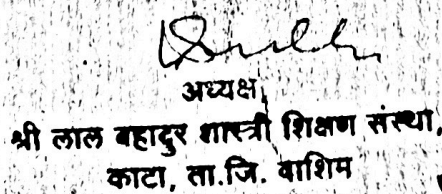 अध्यक्ष,
श्री लाल बहादुर शास्त्री शिक्षण संस्था,
काटा, ता.जि. वाशिम